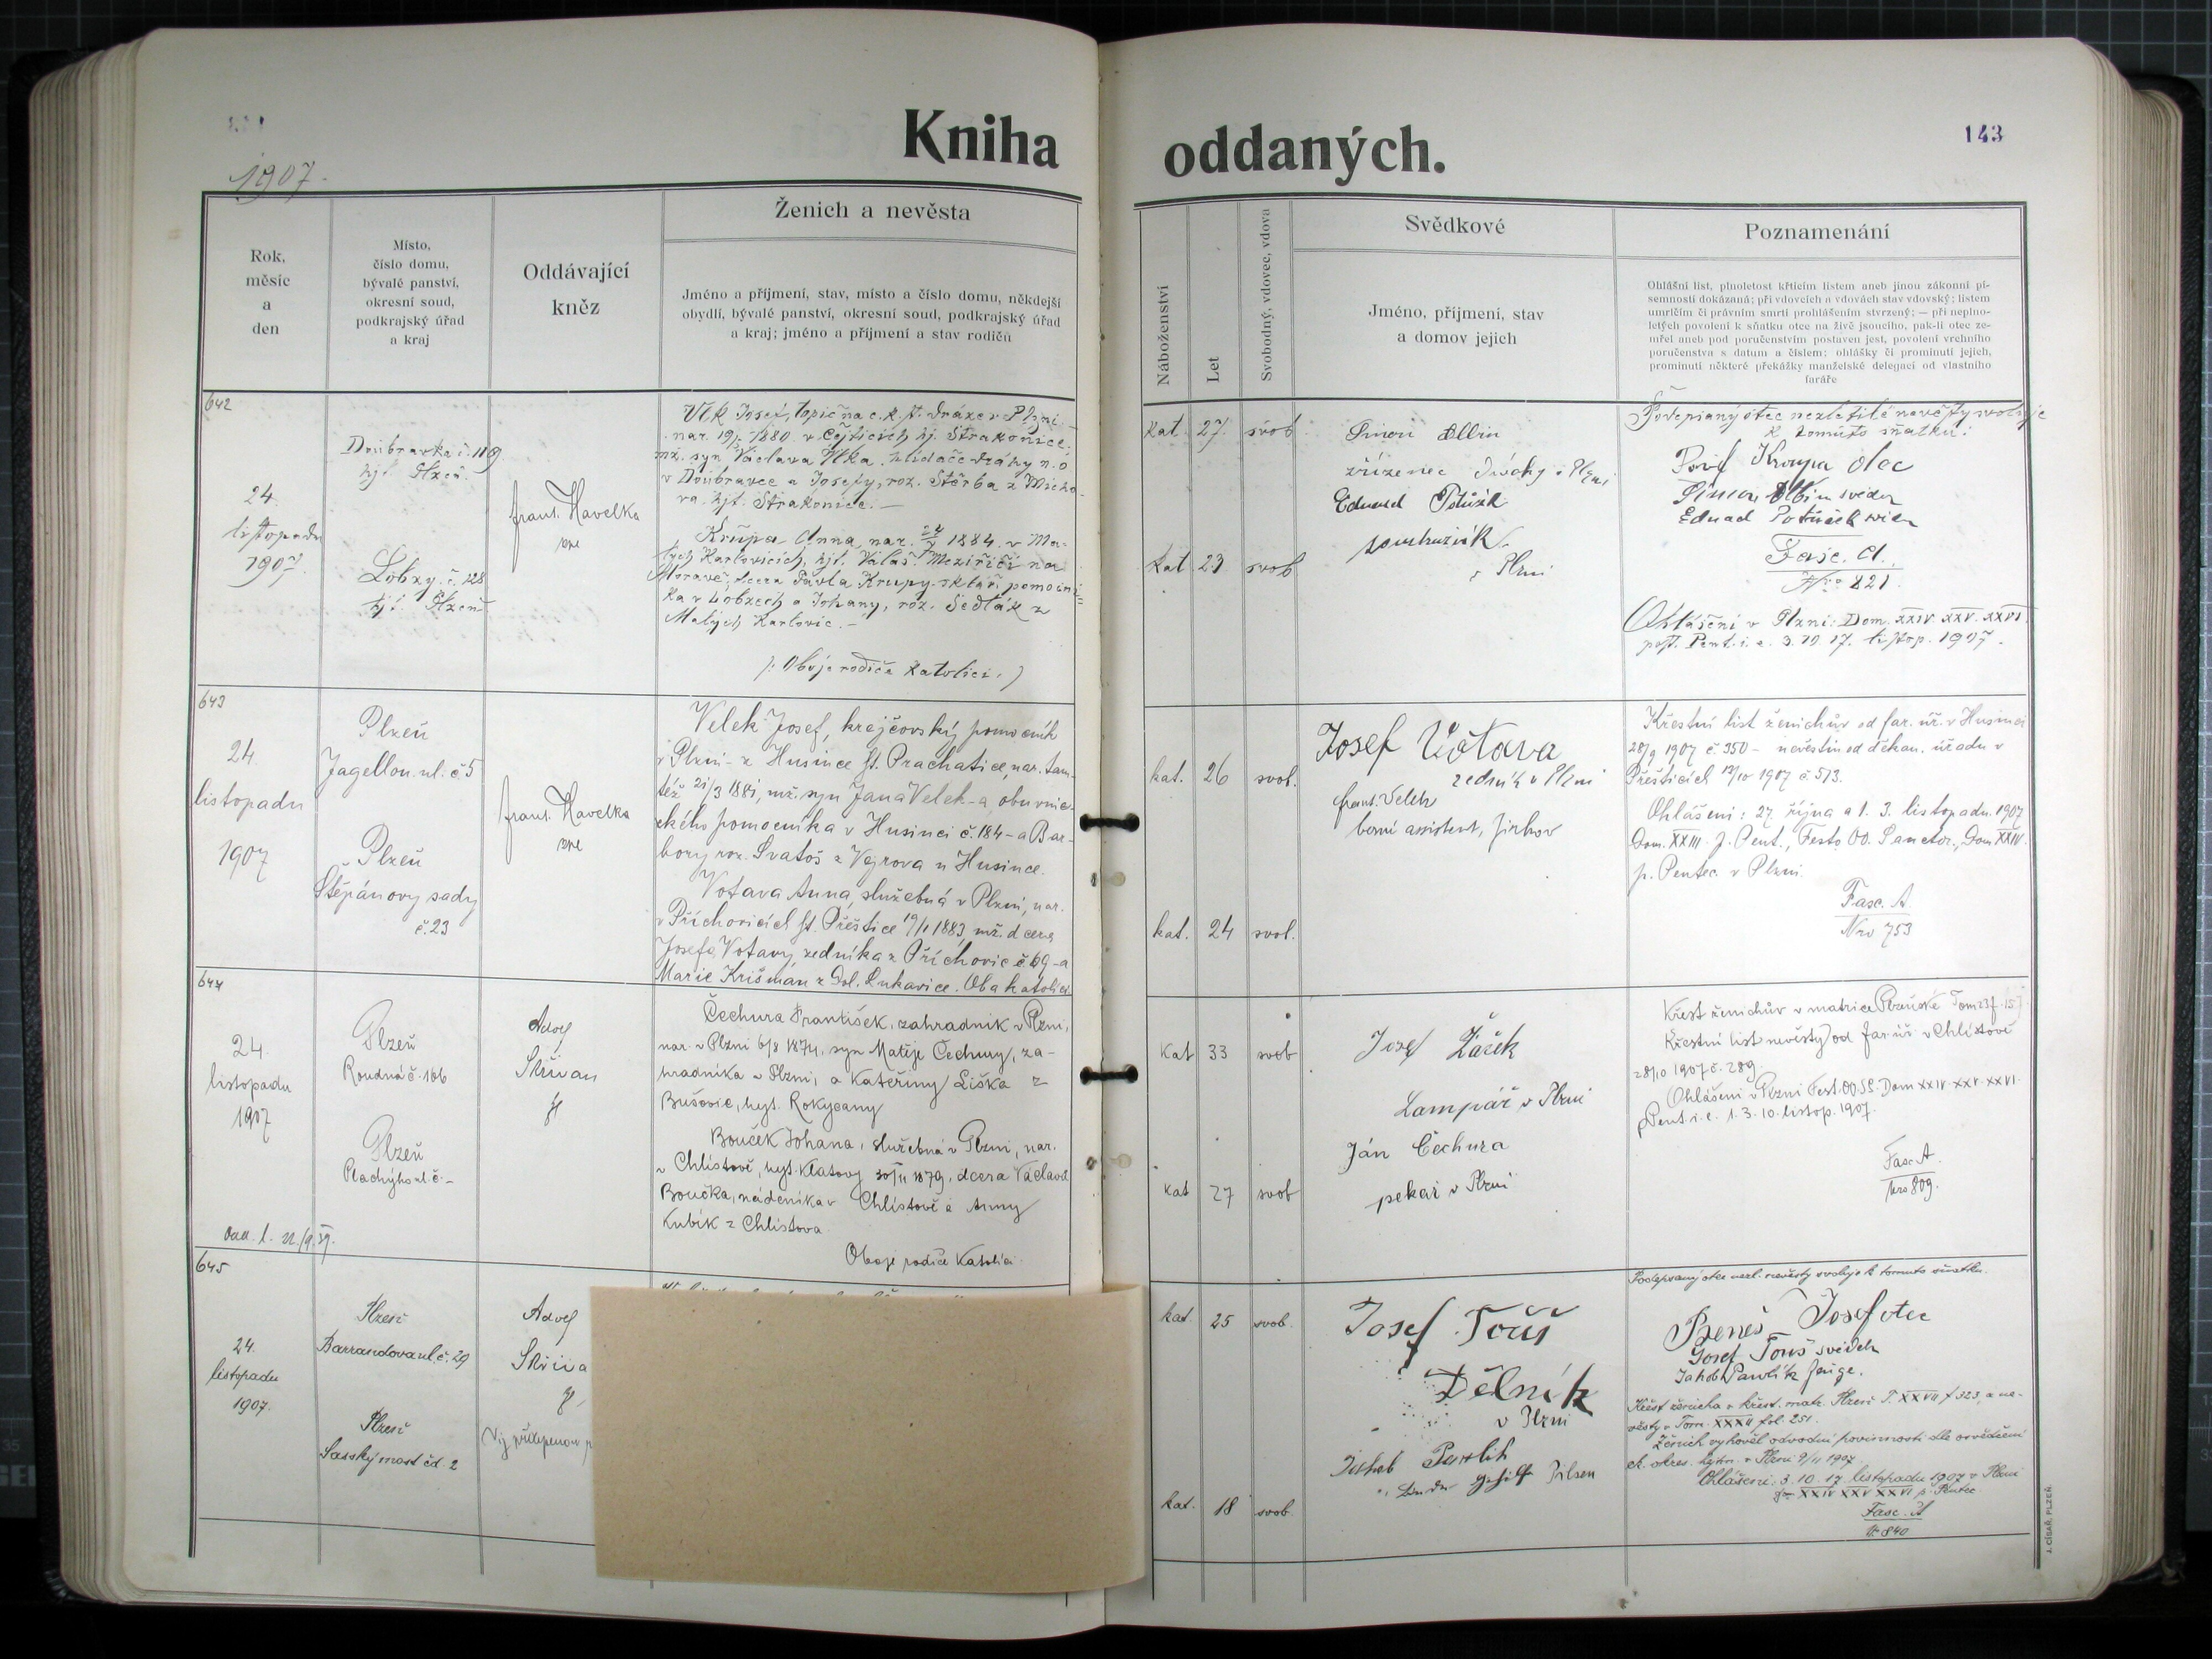 Kniha oddaných.
143
1907.
Rok, měsíc a den
Místo, číslo domu, bývalé panství, okresní soud, podkrajský úřad a kraj
Oddávající kněz
Ženich a nevěsta
Jméno a příjmení, stav, místo a číslo domu, někdejší
obydlí, bývalé panství, okresní soud, podkrajský úřad
a kraj; jméno a příjmení a stav rodičů
Náboženství
Let
Svobodný, vdovec, vdova
Svědkové
Jméno, příjmení, stav
a domov jejich
Poznamenání
Ohlášní list, plnoletost křticím listem aneb jinou zákonní pí-
semností dokázaná; při vdovcích a vdovách stav vdovský; listem
umrlčím či právním smrti prohlášením stvrzený; — při neplno-
letých povolení k sňatku otce na živě jsoucího, pak-li otec ze-
mřel aneb pod poručenstvím postaven jest, povolení vrchního
poručenstva s datum a číslem; ohlášky či prominutí jejich,
prominutí některé překážky manželské delegací od vlastního
faráře
642
24.
listopadu
1907.
Doubravka č. 119
hjt. Plzeň.
Lobzy č. 128
hjt. Plzeň
frant. Havelka
Vlk Josef, topič na c. k. st. dráze v Plzni
nar. 1880 v Čejticích hj. Strakonice,
mž. syn Václava Vlka, hlídače dráhy n. o
v Doubravce a Josefy, roz. Štěrba z Micho-
va hjt. Strakonice. —
Krupa Anna, nar. 1884 v Ma-
lých Karlovicích, hjt. Valaš. Meziříčí na
Moravě, dcera Pavla Krupy, sklář. pomocní-
ka v Lobzích a Johany, roz. Sedlák z
Malých Karlovic. —
/: Oboje rodiče katolíci. /
kat. 27. svob.
kat 23 svob
Simon Albin
zřízenec dráhy v Plzni
Eduard
soustružník
v Plzni
Podepsaný otec nezletilé nevěsty svoluje
k tomuto sňatku:
Krupa otec
Simon Albin svědek
Fasc. A.
Nro 821.
Ohlášení v Plzni: Dom. XXIV. XXV. XXVI.
post. Pent. i. e. 3. 10. 17. listop. 1907.
643
24.
listopadu
1907
Plzeň
Jagellon. ul. č 5
Plzeň
Štěpánovy sady
č. 23
frant. Havelka
Velek Josef, krejčovský pomocník
v Plzni - z Husince st. Prachatice, nar. tam-
též 21/3 1881, mž. syn Jana Velek-a obuvnic-
ckého pomocníka v Husinci č. 184 - a Bar-
bory roz. Svatoš z Vejrova u Husince.
Votava Anna, služebná v Plzni, nar.
v Příchovicích st. Přeštice 1883, mž. dcera
Josefa Votavy, zedníka z Příchovic č 69 - a
Marie Krišmán z Dol. Lukavice. Oba katolíci.
kat. 26 svob.
kat. 24 svob.
Josef Votava
zedník v Plzni
frant. Velek
berní assistent,
Křestní list ženichův od far. úř. v Husinci
28/9 1907 č 350 - nevěstin od děkan. úřadu v
Přešticích 1907 č. 513.
Ohlášeni: 27. října a 1. 3. listopadu 1907
Dom. XXIII. p. Pent., Festo OO. Sanctor., Dom XXIV.
p. Pentec. v Plzni.
Fasc. A
Nro 753
644
24.
listopadu
1907
Plzeň
Roudná č. 186
Plzeň
Plachýho ul. č. -
Adolf
Skřivan
Čechura František, zahradník v Plzni,
nar. v Plzni 6/8 1874, syn Matěje Čechury, za-
hradníka v Plzni, a Kateřiny Liška z
Bušovic, hejt. Rokycany
Bouček Johana, služebná v Plzni, nar.
v Chlístově, hejt. Klatovy 30/11 1879, dcera Václava
Boučka, nádeníka v Chlístově a Anny
Kubík z Chlístova
Oboje rodiče Katolíci.
Kat 33 svob
Kat 27 svob
Josef Žáček
Lampář v Plzni
Ján Čechura
pekař v Plzni
Křest ženichův v matrice Plzeňské Tom 23 f. 15
Křestní list nevěsty od far. úř. v Chlístově
28/10 1907 č. 289.
Ohlášeni v Plzni Fest. OO. SS. Dom XXIV. XXV. XXVI.
p Pent. i. e. 1. 3. 10. listop. 1907.
Fasc. A.
Nro 809.
645
24.
listopadu
1907.
Plzeň
Barrandova ul. č. 29
Plzeň
Saský most čd. 2
Adolf
kat. 25 svob.
kat. 18 svob.
Josef Touš
Dělník
v Plzni
Pilsen
Podepsaný otec nezl. nevěsty svoluje k tomuto sňatku.
Beneš Josef otec
Josef Touš svědek
Jakob Pawlik Zeuge.
Křest ženicha v křest. matr. Plzeň T. XXVII f 323, a ne-
věsty v Tom. XXXII fol. 251.
Ženich vyhověl odvodní povinnosti dle osvědčení
ck. okres. hejtm. v Plzni 9/11 1907
Ohlášeni: 3. 10. 17. listopadu 1907 v Plzni
XXIV XXV XXVI p. Pentec.
Fasc. A
N: 840
J. CÍSAŘ, PLZEŇ